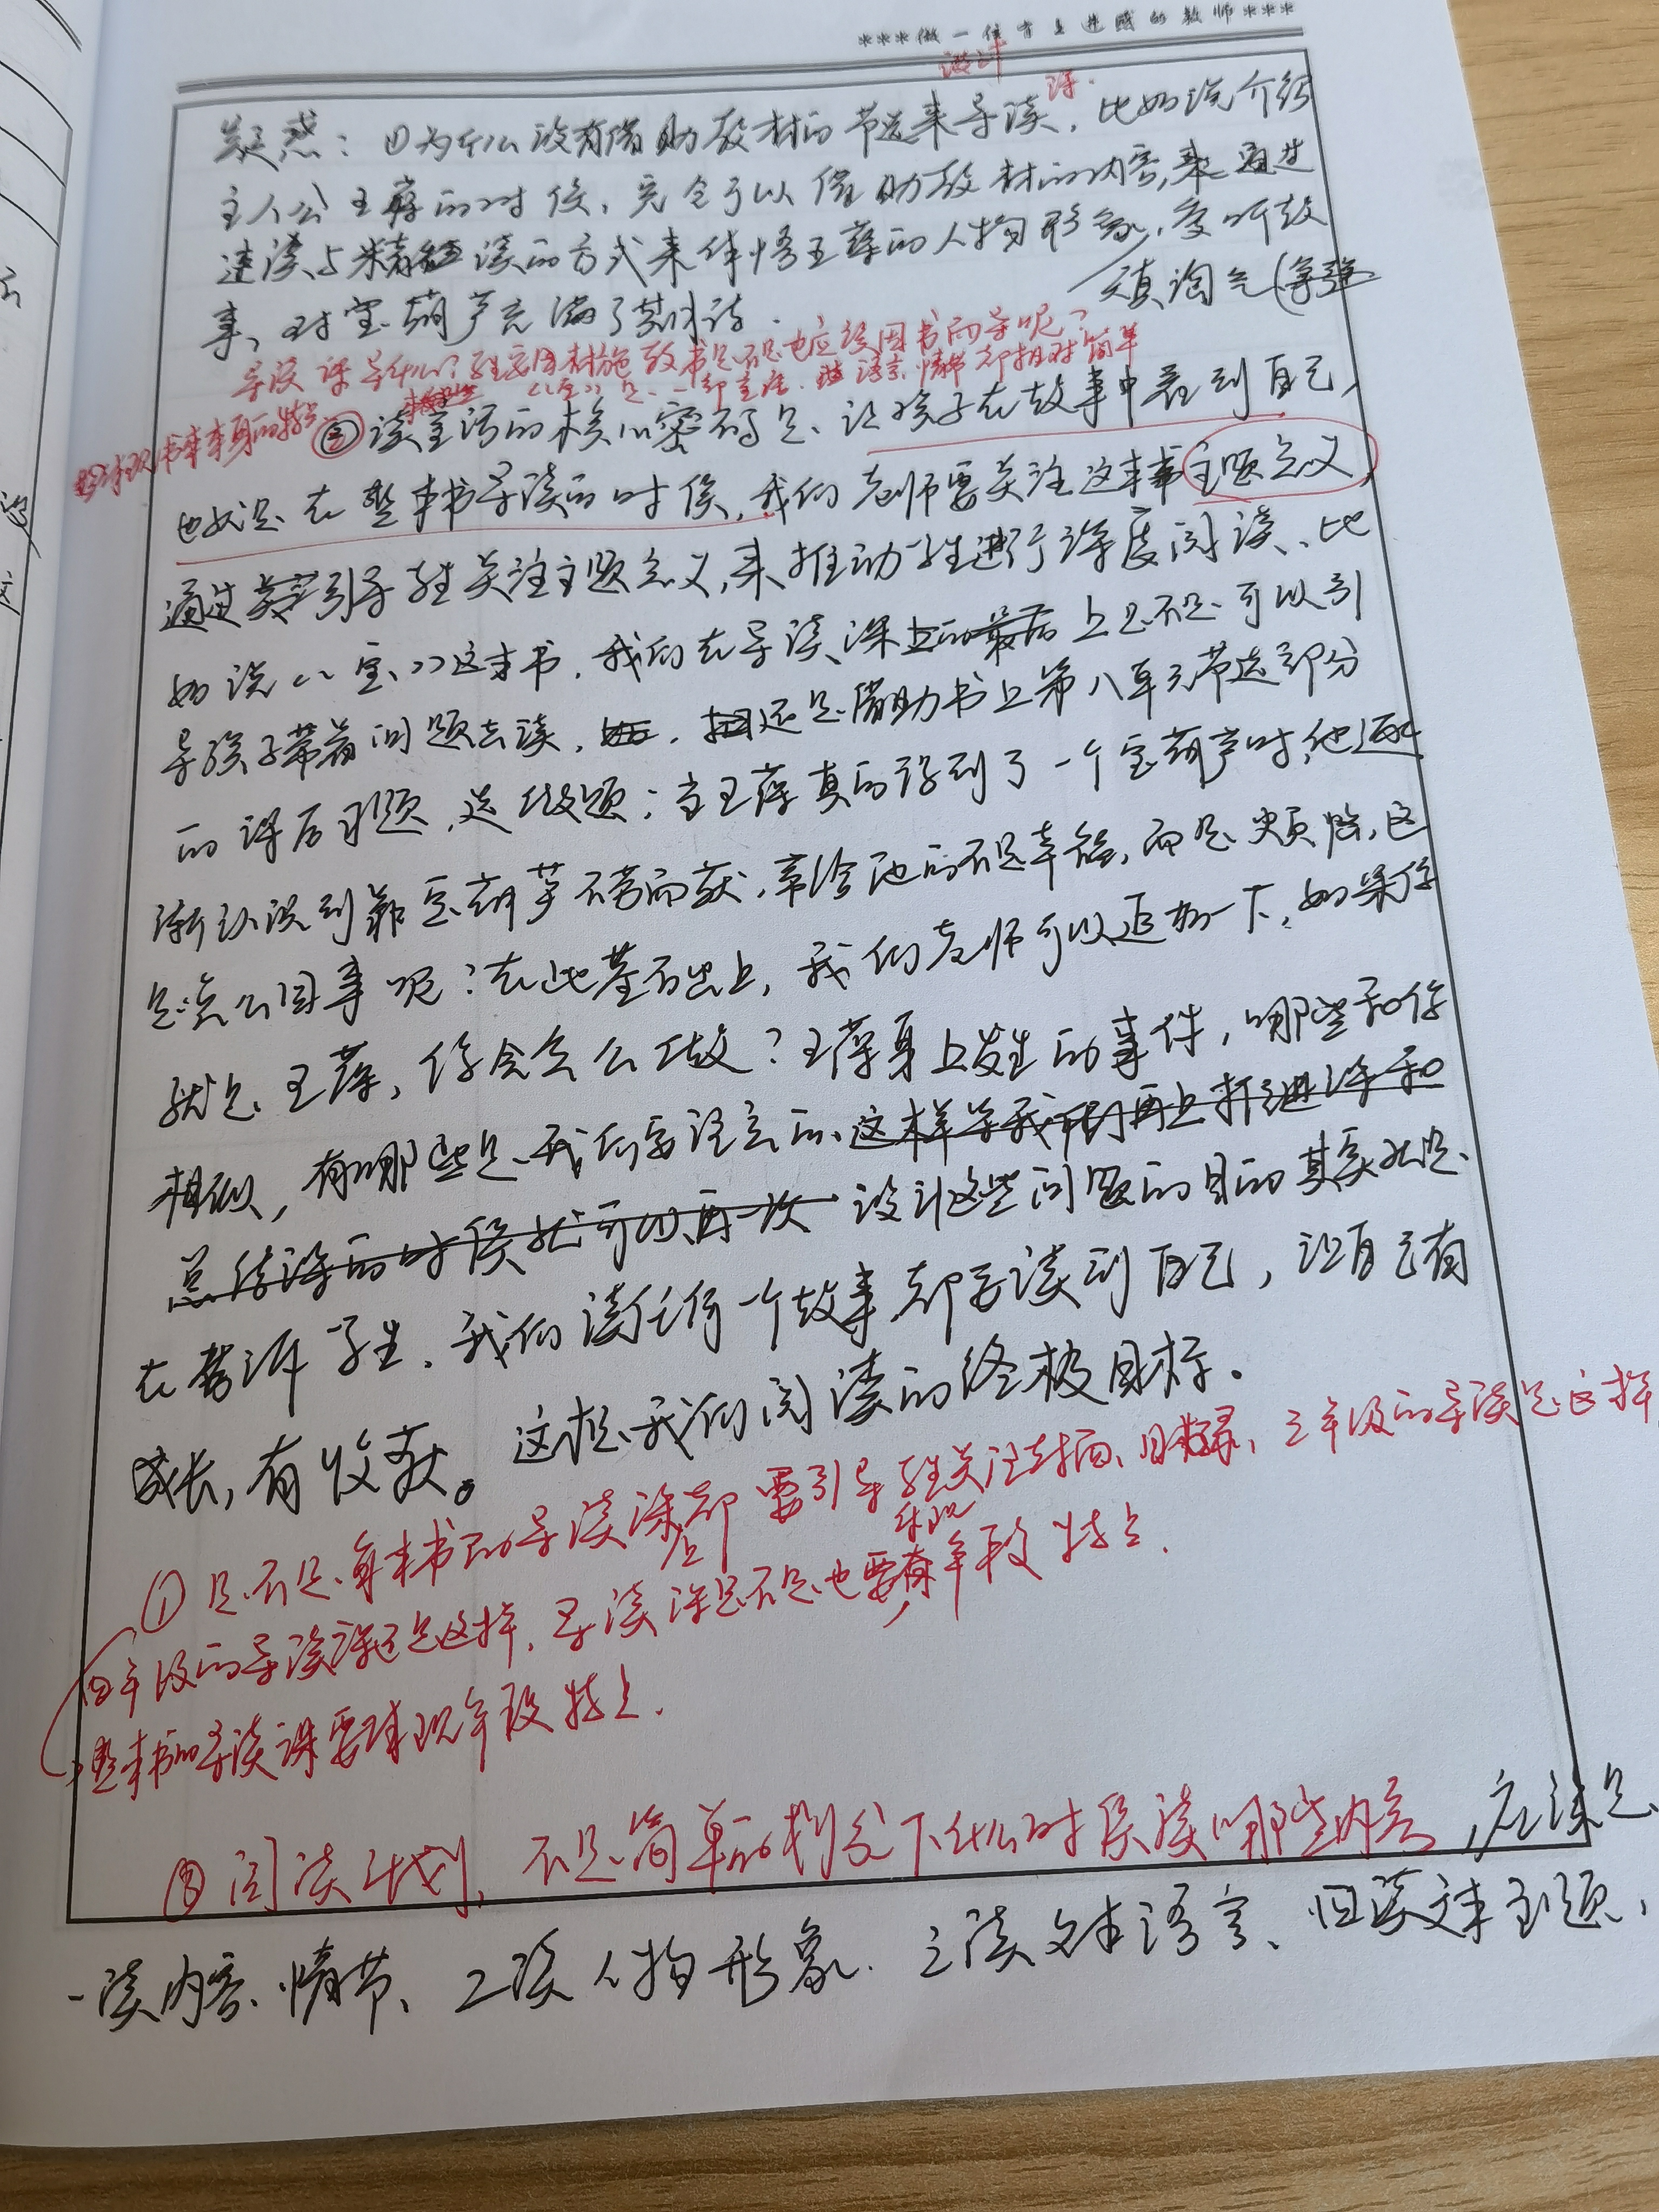 ***做一位有上进感的教师***
设计
疑惑：①为什么没有借助教材的节选来导读课，比如说介绍
主人公王葆的时候，完全可以借助教材的内容，来通过
速读与精读的方式来体悟王葆的人物形象，爱听故
事、对宝葫芦充满了期待．天真淘气
导读课导什么？我们要因材施教书是不是也应该因书而导呢？
《宝》是一部童话．语言、情节都相对简单
要体现书本本身的特点
②读童话的核心密码是、让孩子在故事中看到自己，
也就是在整本书导读的时候，我们老师要关注这本书主题意义，
通过引导学生关注主题意义，来推动学生进行深度阅读、比
如说《宝》这本书．我们在导读课上是不是可以引
导孩子带着问题去读．还是借助书上第八单元节选部分
的课后习题，选做题：当王葆真的得到了一个宝葫芦时，他逐
渐认识到靠宝葫芦不劳而获，带给他的不是幸福，而是烦恼，这
是怎么回事呢？在此基础上，我们老师可以追加一下，如果你
就是王葆，你会怎么做？王葆身上发生的事件，哪些和你
相似，有哪些是我们要注意的．这样导我们再上推进课和
总结课的时候就可以再一次 设计这些问题的目的其实就是
在告诉学生．我们读任何一个故事都要读到自己，让自己有
成长，有收获。这是我们阅读的终极目标。
①是不是每本书的导读课上都要引导学生关注封面、目录、三年级的导读是这样
四年级的导读课还是这样．导读课是不是也要体现年段特点．
整本书的导读课要体现年段特点．
③阅读计划，不是简单的划分下什么时候读哪些内容，应该是
一读内容、情节、二读人物形象．三读文本语言、四读文本主题，